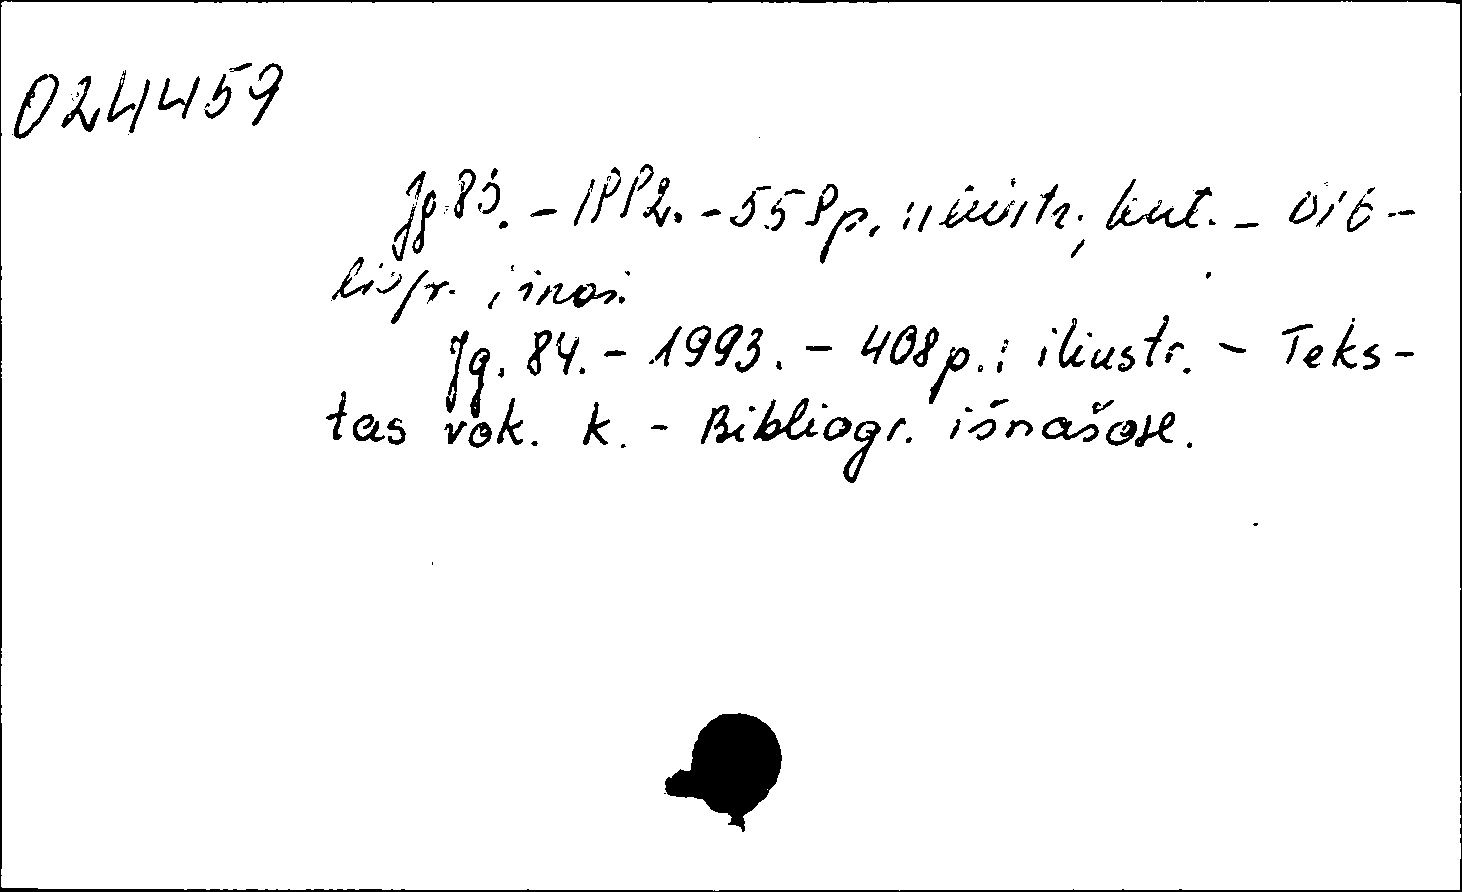 024459
Jg 83. - 1992. - 558p. : iliustr., - bib-
liogr. išnaš.
Jg. 84. - 1993. - 408p. : iliustr. - Teks-
tas vok. k. - Bibliogr. išnašose.